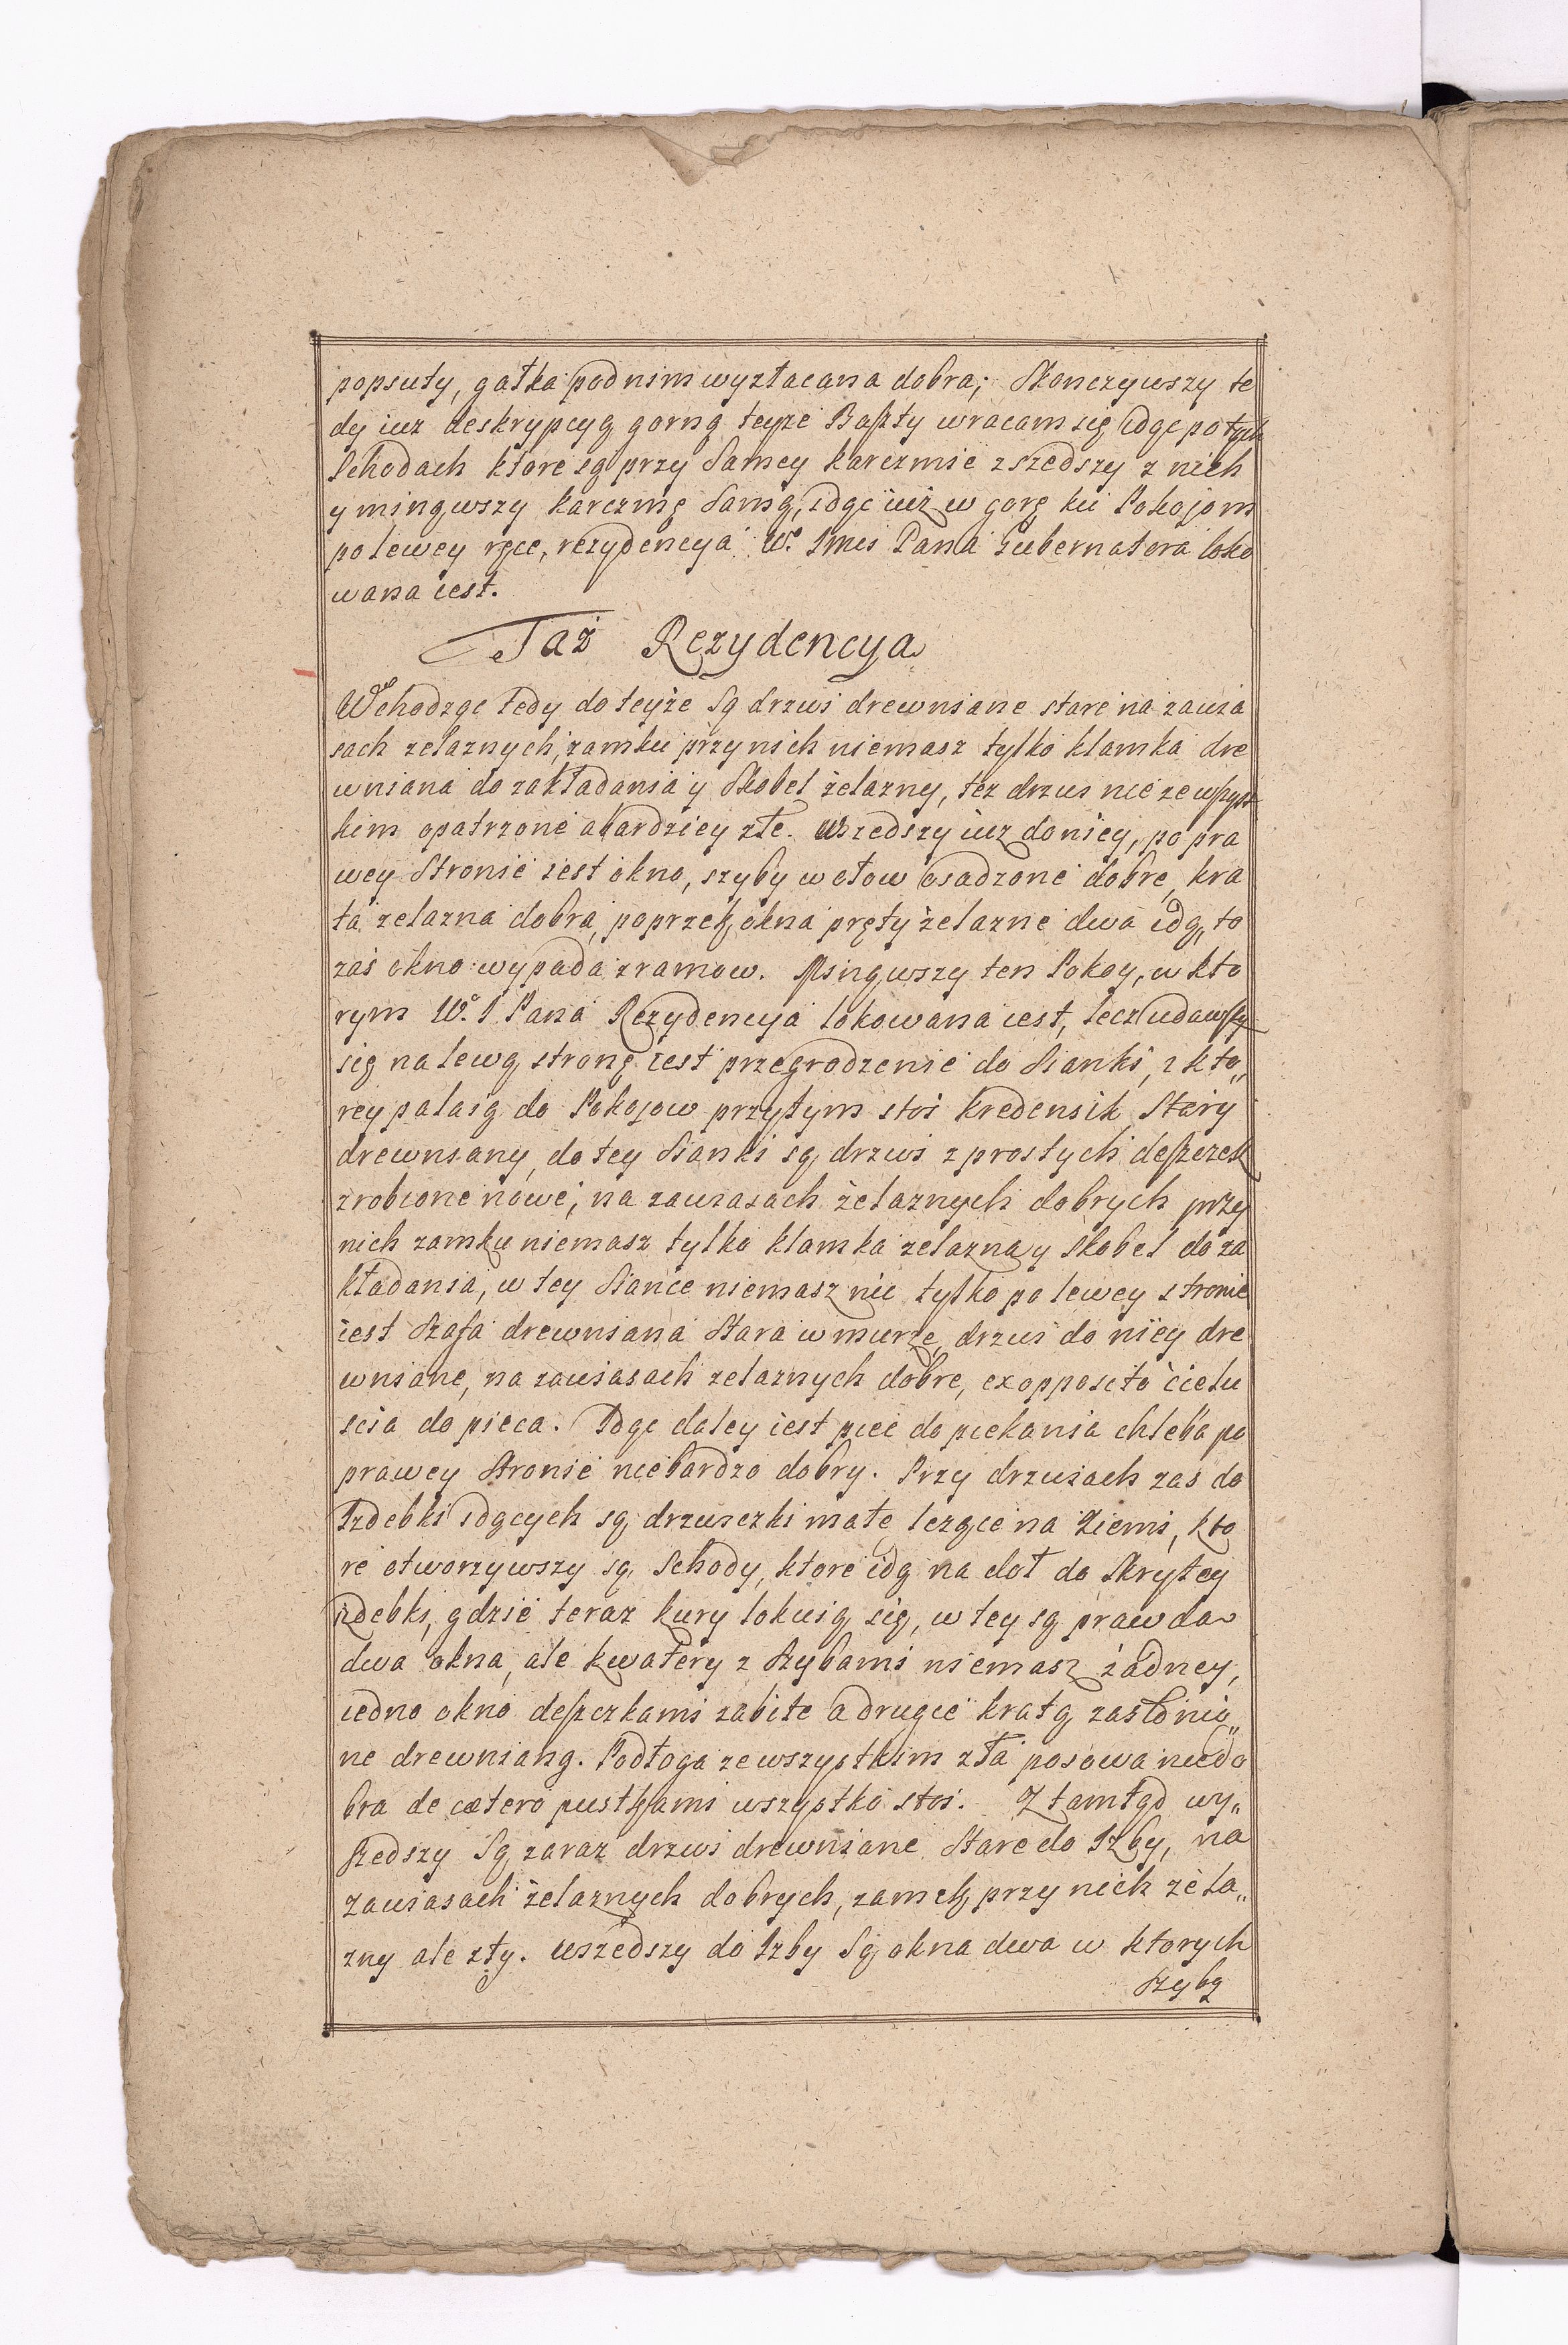 popsuty, gałka pod nim wyzłacana dobra; Skonczywszy te
dy iuz deskrypcyą gorną teyze Baszty wracam się idąc po tych
Schodach ktore są przy Samey karczmie zszedszy z nich
y minąwszy karczmę Samą, idąc iuż w gorę ku Pokojom
po lewey ręce, rezydencya W.º Jmci Pana Gubernatora loko
wana iest.
Taż Rezydencya
Wchodząc tedy do teyże Są drzwi drewniane stare na zawia
sach zelaznych, zamku przy nich niemasz tylko klamka dre
wniana do zakładania y Skobel żelazny, tez drzwi nie ze wszyst
kim opatrzone a bardziey złe. Wszedszy iuz do niey, po pra
wey Stronie iest okno, szyby w ołow osadzone dobre, kra
ta zelazna dobra, poprzek okna pręty żelazne dwa idą, to
zaś okno wypada z ramow. Minąwszy ten Pokoy, w kto
rym W.º J Pana Rezydencya lokowana iest, lecz udawszy
się na lewą stronę iest przegrodzenie do Sianki, z kto„
rey palaią do Pokojow przytym stoi kredensik Stary
drewniany, do tey Sianki są drzwi z prostych deszczek
zrobione nowe, na zawiasach żelaznych dobrych przy
nich zamku niemasz tylko klamka zelazna y Skobel do za
kładania, w tey Siance niemasz nic tylko po lewey stronie
iest Szafa drewniana Stara w murze, drzwi do niey dre
wniane, na zawiasach zelaznych dobre, ex opposito ciełu
scia do pieca. Idąc daley iest piec do piekania chleba po
prawey Stronie nie bardzo dobry. Przy drzwiach zaś do
Izdebki idących są drzwiczki małe lezące na Ziemi, kto
re otworzywszy są Schody, ktore idą na doł do Skrytey
izdebki, gdzie teraz kury lokuią się, w tey są prawda
dwa okna, ale kwatery z Szybami niemasz żadney,
iedno okno deszczkami zabite a drugie kratą zasłonio„
ne drewnianą. Podłoga ze wszystkim zła posowa niedo
bra de cætero pustkami wszystko stoi. Z tamtąd wy„
szedszy Są zaraz drzwi drewniane Stare do Izby, na
zawiasach żelaznych dobrych, zamek przy nich żela„
zny ale zły. Wszedszy do Izby Są okna dwa w ktorych
Szybą